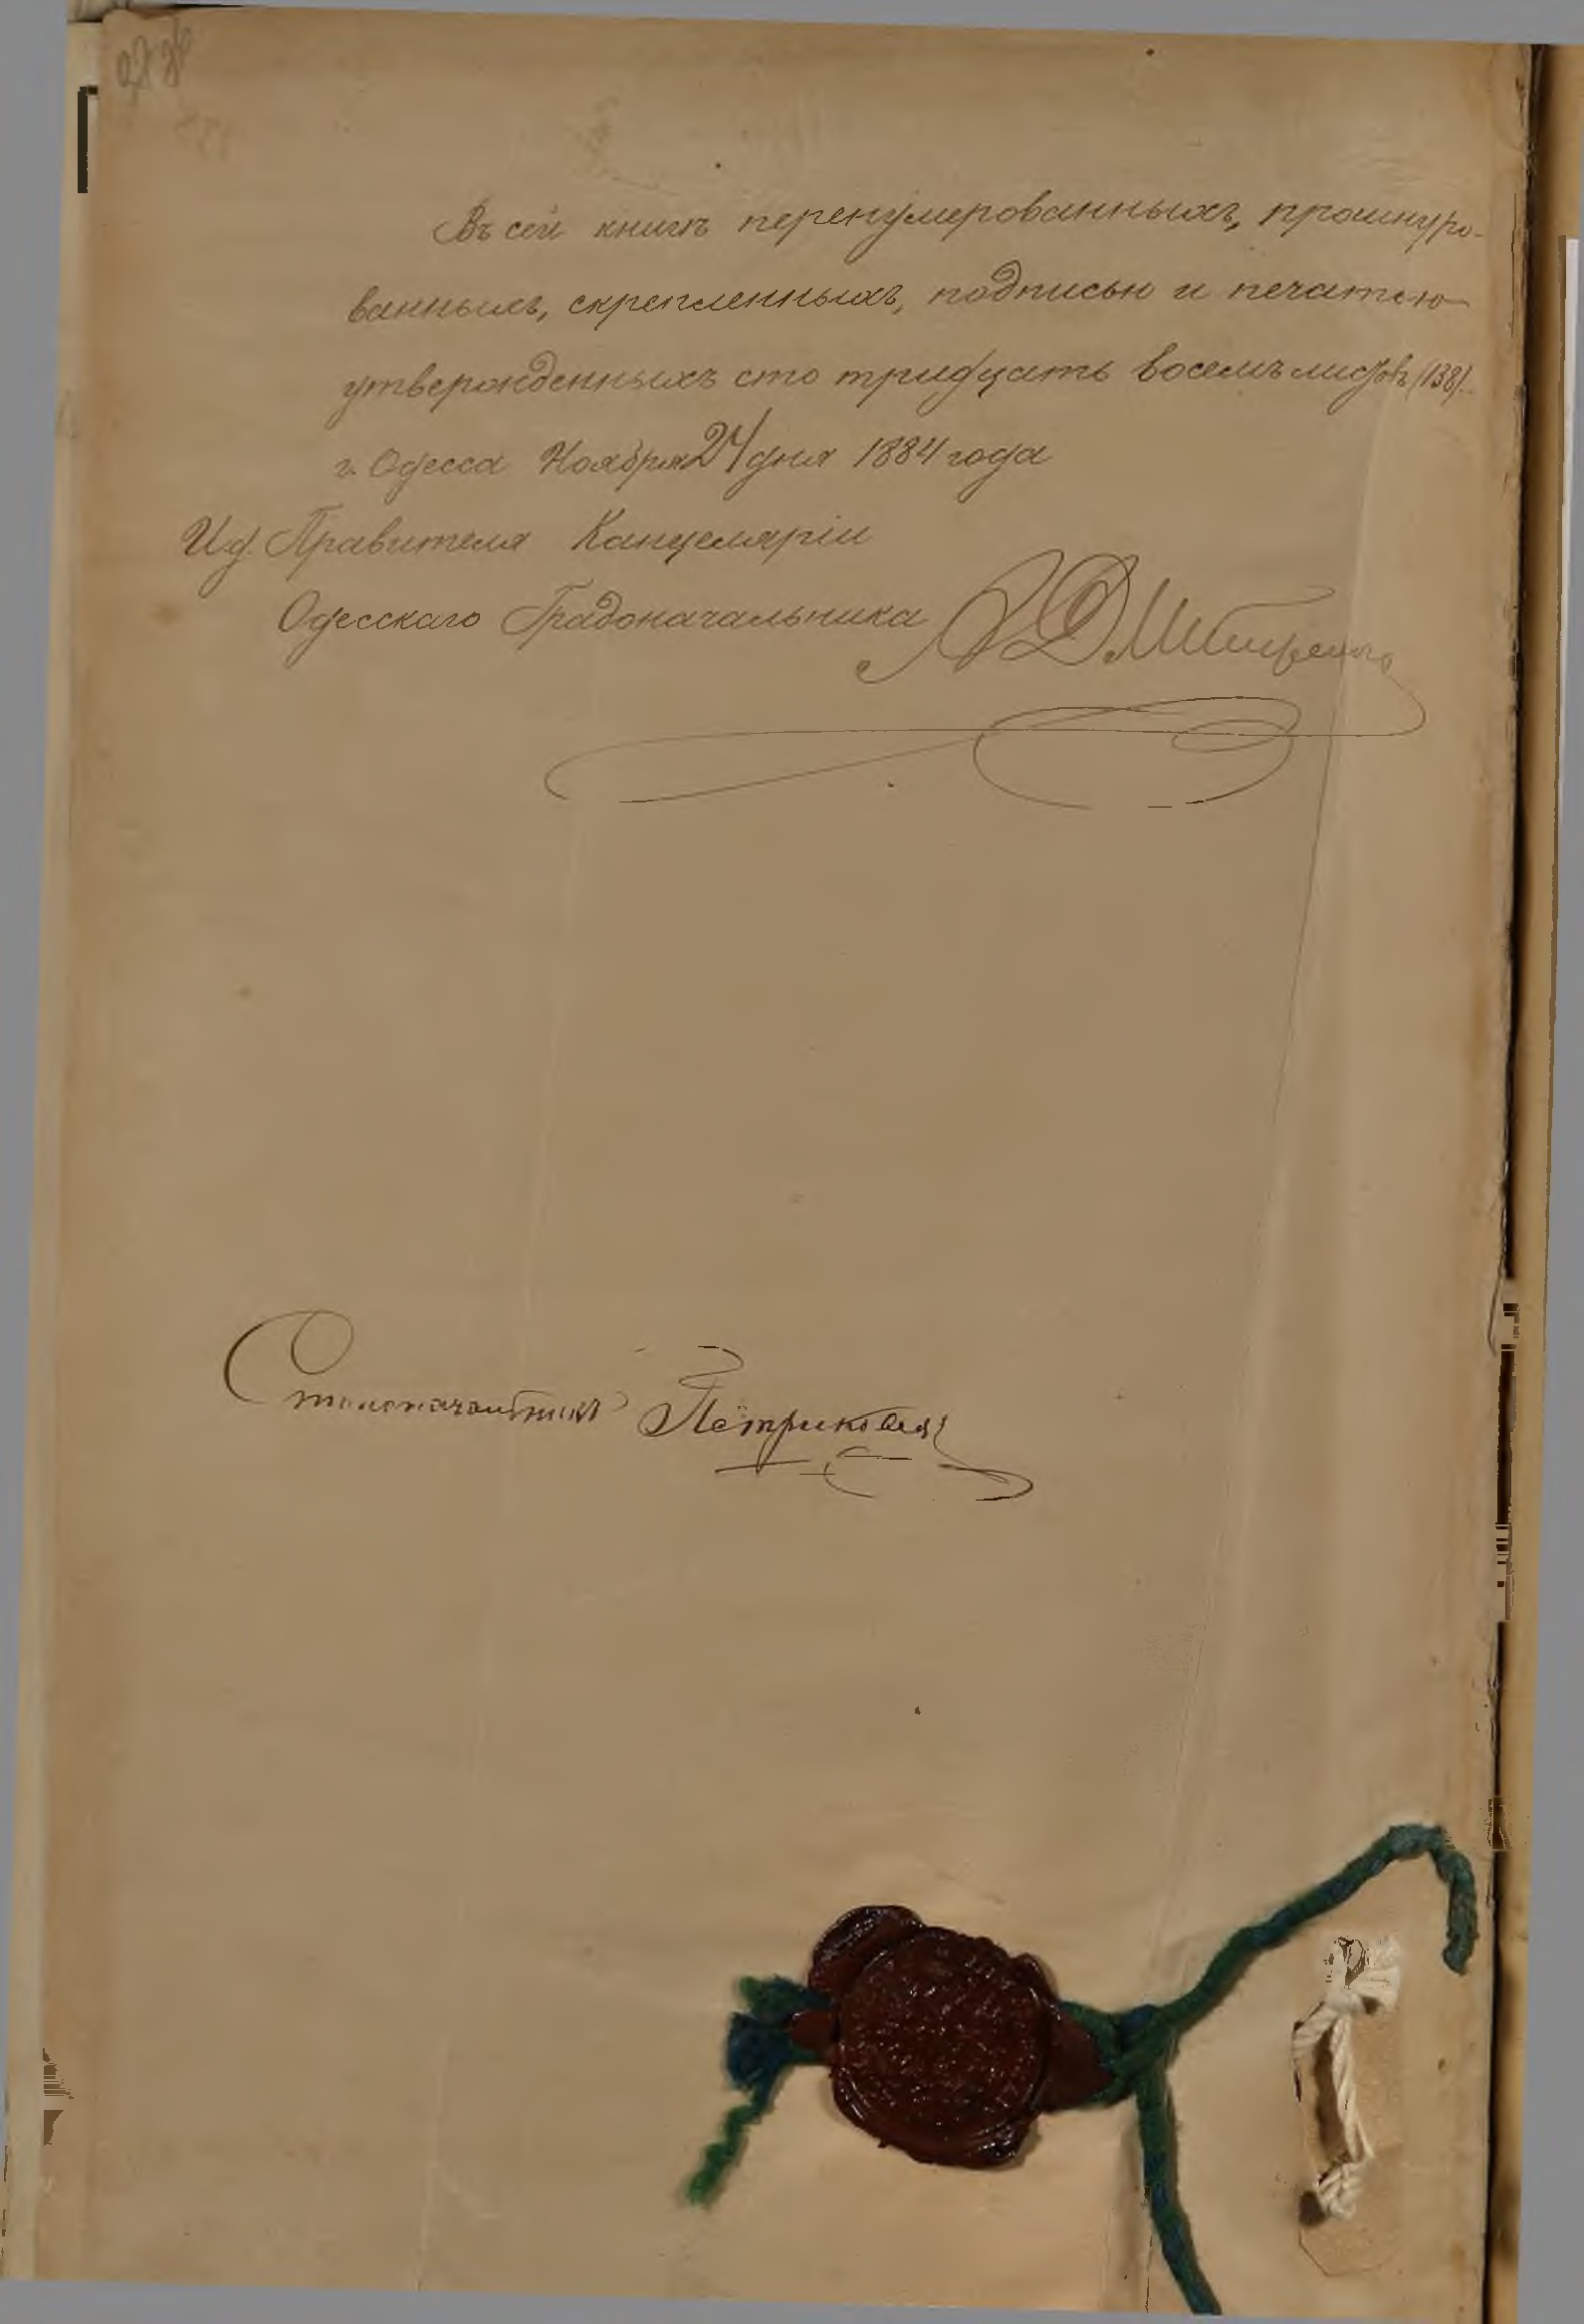 Въ сей книгѣ перенумерованныхъ, прошнуро-
ванныхъ, скрепленныхъ, подписью и печатью
утвержденныхъ сто тридцать восемь листовъ (138).
г. Одесса Ноября 24 дня 1884 года
И.д. Правителя Канцеляріи
Одесскаго Градоначальника
Столоначальникъ